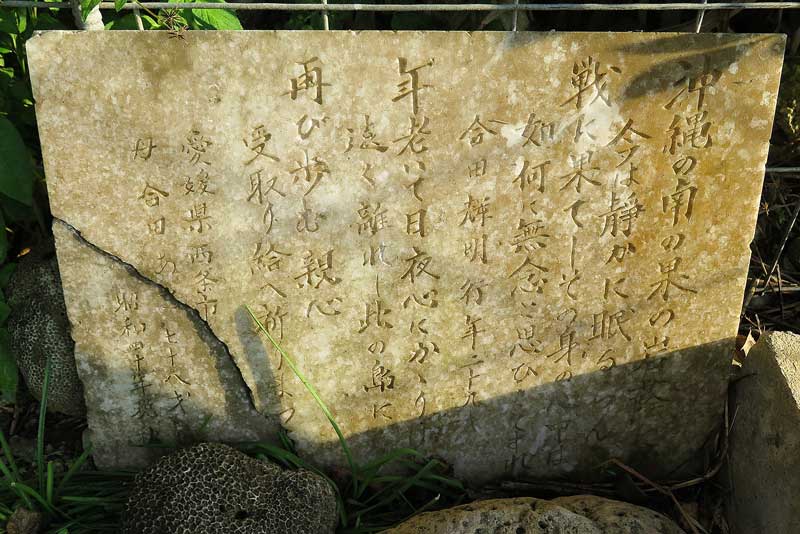 沖縄の南の果の
今は静かに眠る
戦に果てしその身の
如何に無念と思ひ
合田輝明 行年二十九
年老いて日夜心にかゝり
遠く離れし此の島に
再び歩む親心
受取り給へ祈りまつ
愛媛県西条市
母 合田 七十八才
昭和四十